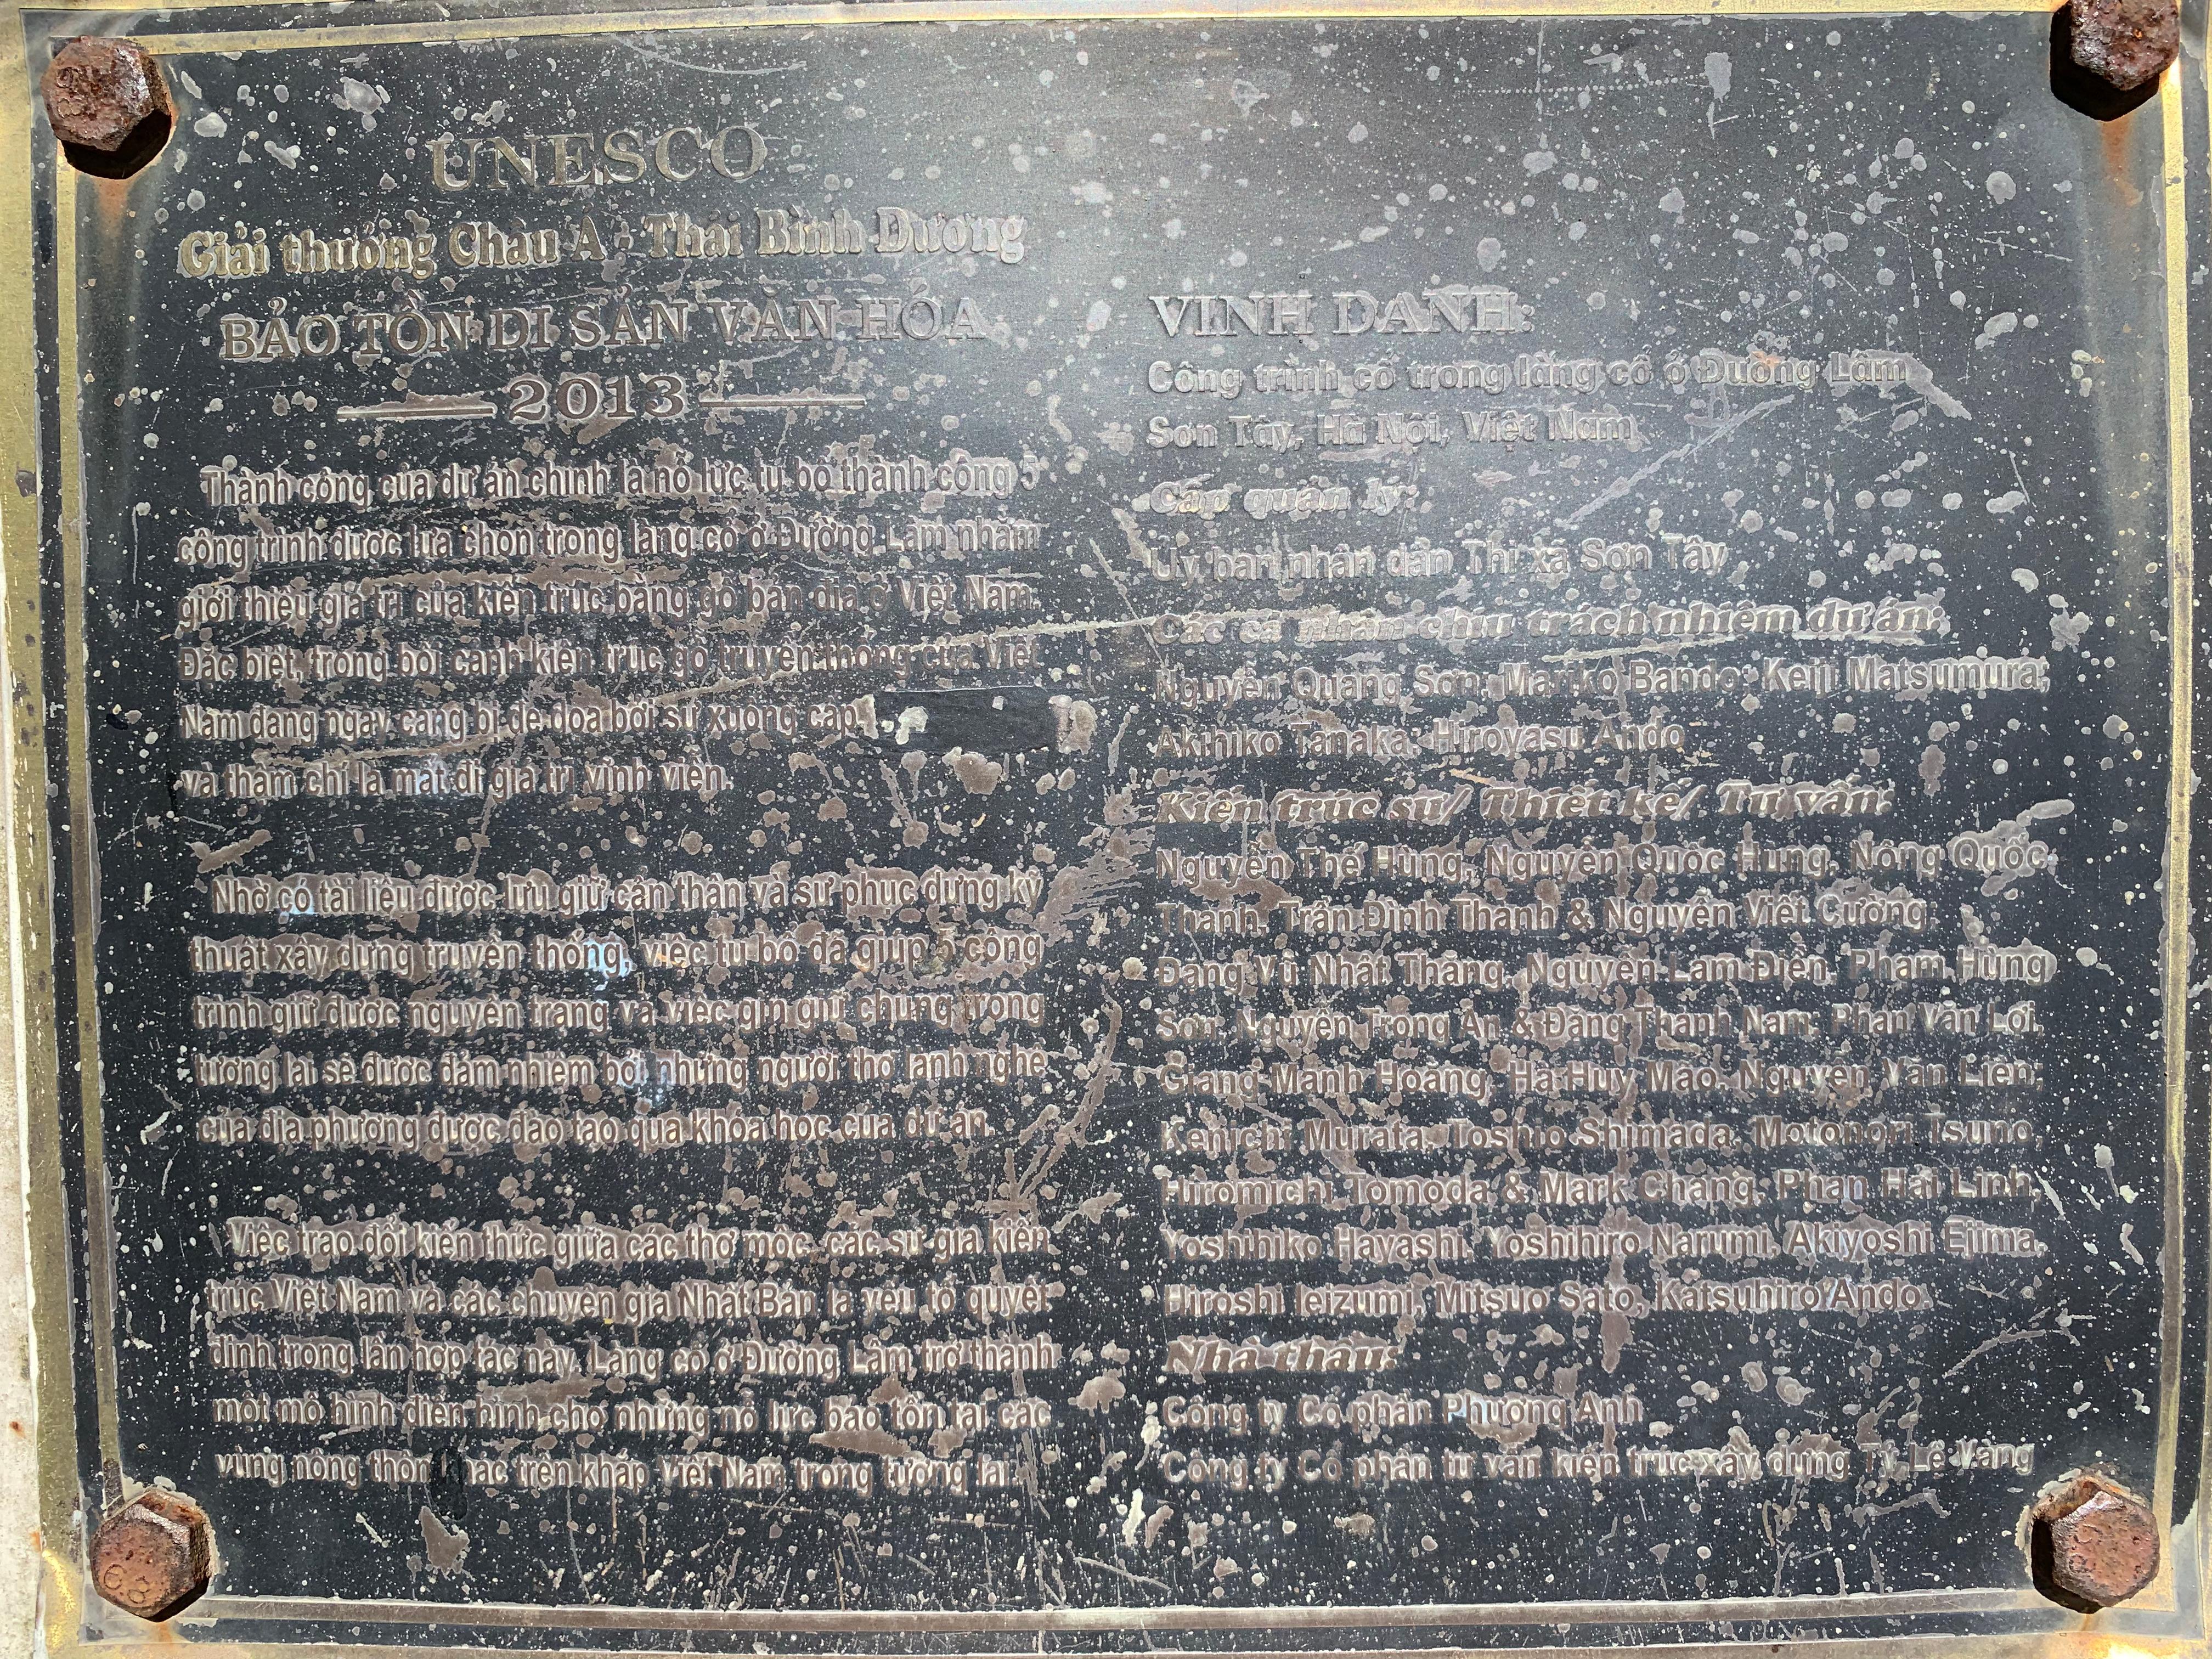 UNESCO
Giải thưởng Châu Á - Thái Bình Dương
BẢO TỒN DI SẢN VĂN HÓA
2013
Thành công của dự án chính là nỗ lực tu bổ thành công 5
công trình được lựa chọn trong làng cổ ở Đường Lâm nhằm
giới thiệu giá trị của kiến trúc bằng gỗ bản địa ở Việt Nam.
Đặc biệt, trong bối cảnh kiến trúc gỗ truyền thống của Việt
Nam đang ngày càng bị đe dọa bởi sự xuống cấp
và thậm chí là mất đi giá trị vĩnh viễn.
Nhờ có tài liệu được lưu giữ cẩn thận và sự phục dựng kỹ
thuật xây dựng truyền thống, việc tu bổ đã giúp 5 công
trình giữ được nguyên trạng và việc gìn giữ chúng trong
tương lai sẽ được đảm nhiệm bởi những người thợ lành nghề
của địa phương được đào tạo qua khóa học của dự án.
Việc trao đổi kiến thức giữa các thợ mộc, các sử gia kiến
trúc Việt Nam và các chuyên gia Nhật Bản là yếu tố quyết
định trong lần hợp tác này. Làng cổ ở Đường Lâm trở thành
một mô hình điển hình cho những nỗ lực bảo tồn tại các
vùng nông thôn khác trên khắp Việt Nam trong tương lai.
VINH DANH:
Công trình cổ trong làng cổ ở Đường Lâm
Sơn Tây, Hà Nội, Việt Nam
Cấp quản lý:
Uỷ ban nhân dân Thị xã Sơn Tây
Các cá nhân chịu trách nhiệm dự án:
Nguyễn Quang Sơn, Mariko Bando; Keiji Matsumura;
Akihiko Tanaka, Hiroyasu Ando
Kiến trúc sư/ Thiết kế/ Tư vấn:
Nguyễn Thế Hùng, Nguyễn Quốc Hùng, Nông Quốc
Thành, Trần Đình Thành & Nguyễn Viết Cường;
Đặng Vũ Nhật Thăng, Nguyễn Lam Điền, Phạm Hùng
Sơn, Nguyễn Trọng An & Đặng Thành Nam; Phan Văn Lợi,
Giang Mạnh Hoàng, Hà Huy Mão, Nguyễn Văn Liên;
Kenichi Murata, Toshio Shimada, Motonori Tsuno,
Hiromichi Tomoda & Mark Chang, Phan Hải Linh,
Yoshihiko Hayashi, Yoshihiro Narumi, Akiyoshi Ejima,
Hiroshi Ieizumi, Mitsuo Sato, Katsuhiro Ando.
Nhà thầu:
Công ty Cổ phần Phượng Anh
Công ty Cổ phần tư vấn kiến trúc xây dựng Tỷ Lệ Vàng